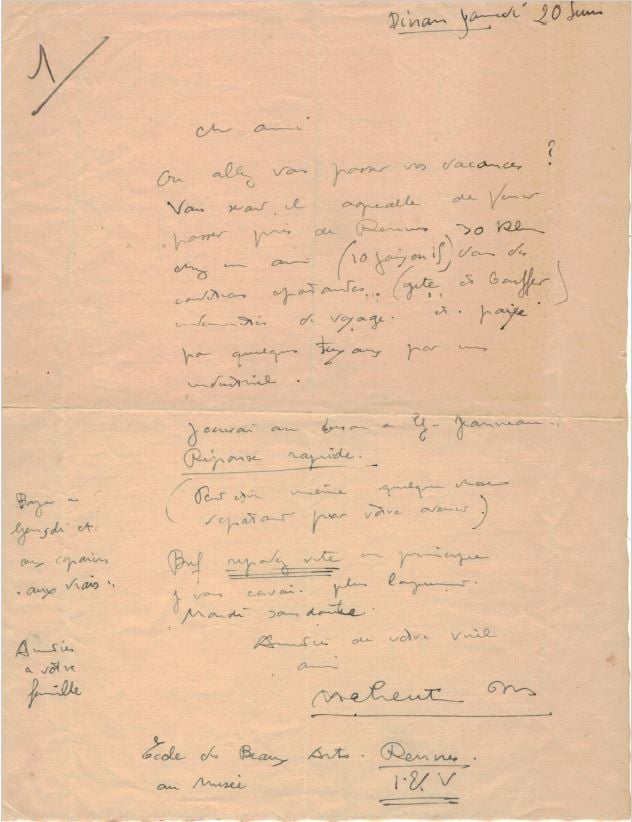 Dinan Samedi 20 Juin
1/
cher ami
Ou allez vous passer vos vacances ?
Vous serait il agreable de venir
passer près de Rennes 30 Klm
chez un ami (10 jours ou 15) dans des
conditions épatantes.. (gite et bouffer)
indemnités de voyage. et payé
par quelques tuyaux par un
industriel.
J'ecrirai au besoin a G. Jeanneau..
Réponse rapide.
(Peut etre même quelque chose
d'épatant pour votre avenir.)
Bref repondez vite en principe
je vous ecrirai plus longuement.
Mardi sans doute.
Amitiés de votre vieil
ami
Méheut
Bonjour a
et
aux copains
"aux vrais"
Amitiés
a votre
famille
École des Beaux Arts. Rennes.
au Musée
I. & V